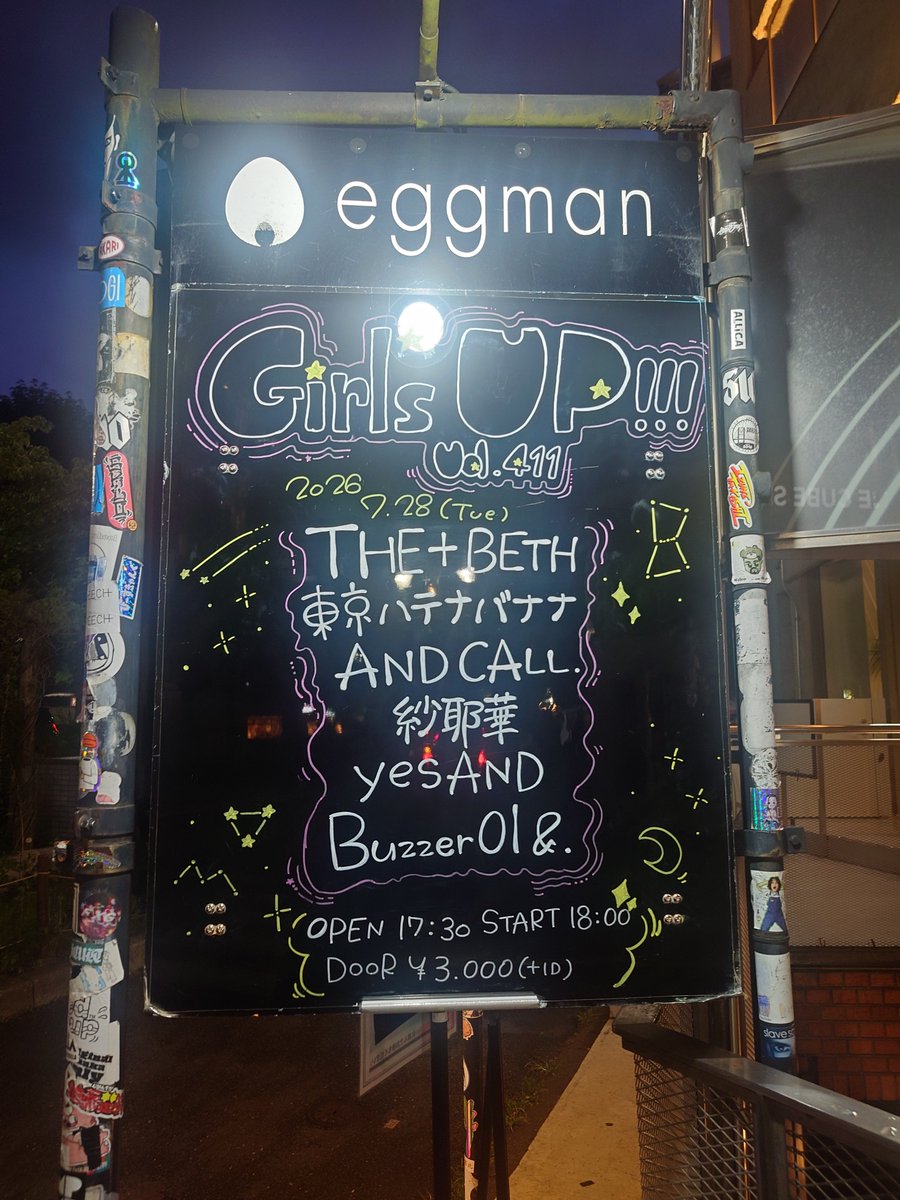 eggman
Girls UP!!!
Vol.411
2026
7.28(Tue)
THE+BETH
東京ハテナバナナ
AND CALL.
紗耶華
yesAND
Buzzer01&.
OPEN 17:30 START 18:00
DOOR ¥3.000(+1D)
ALLiCA